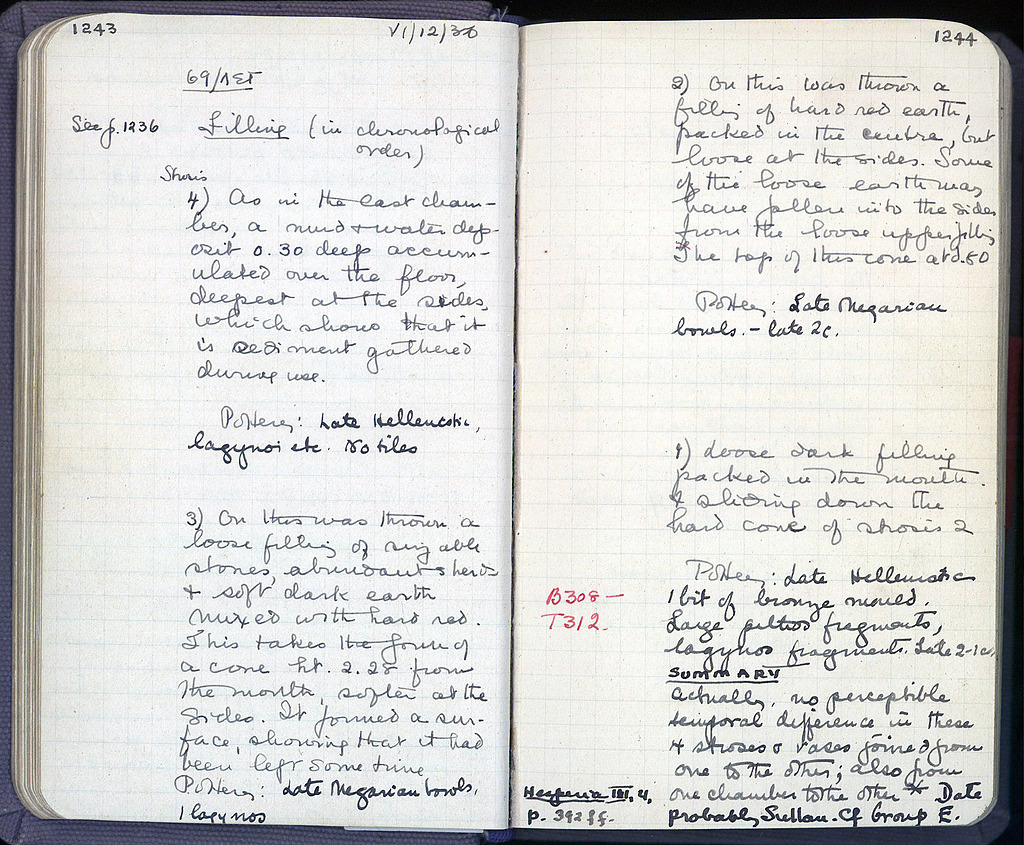 1243
VI/12/36
69/ΛΕΤ
See p. 1236
Filling (in chronological
order)
Strosis
4) As in the east cham-
ber, a mud & water dep-
osit 0.30 deep accum-
ulated over the floor,
deepest at the sides,
which shows that it
is sediment gathered
during use.
Pottery: Late Hellenistic,
lagynoi etc. No tiles
3) On this was thrown a
loose filling of
stones, abundant sherds
& soft dark earth
mixed with hard red.
This takes the form of
a cone ht. 2.28 from
the mouth, softer at the
sides. It formed a sur-
face, showing that it had
been left some time
Pottery: Late Megarian bowls,
1 lagynos
1244
2) On this was thrown a
filling of hard red earth,
packed in the centre, but
loose at the sides. Some
of the loose earth may
have fallen into the sides
from the loose upper filling
The top of this cone at 0.80
Pottery: Late Megarian
bowls. - late 2c.
1) Loose dark filling
packed in the mouth
& sliding down the
hard cone of strosis 2
Pottery: Late Hellenistic
1 bit of bronze mould.
Large pithos fragments,
lagynos fragments. Late 2-1c.
B308 —
T312.
SUMMARY
Actually, no perceptible
temporal difference in these
4 stroses & vases joined from
one to the other; also from
one chamber to the other * Date
probably Sullan. Cf Group E.
Hesperia III, 4,
p. 392 ff.